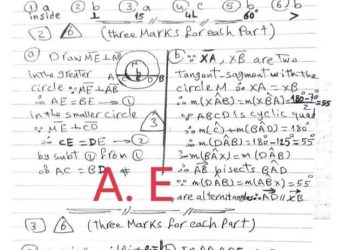 ① a ② b ③ a ④ c ⑤ b ⑥ b
inside ⊥ 15 4L 60° >
2 6 (three Marks for each Part)
ⓐ Draw ME ⊥ AB
In the greater
circle ∵ ME ⊥ AB
∴ AE = BE → ①
in the smaller circle
∵ ME ⊥ CD
∴ CE = DE → ②
by subt ② from ①
∴ AC = BD #
M
A C E D B
3
ⓑ ∵ XA, XB are Two
tangent-segment with the
circle M ∴ XA = XB
∴ m(XAB) = m(XBA) = 180-70/2 = 55
∵ ABCD is cyclic quad
∴ m(C) + m(DAB) = 180°
∴ m(DAB) = 180 - 125 = 55
∴ m(BAX) = m(DAB)
∴ AB bisects DAD
∵ m(DAB) = m(ABX) = 55
are alternate ∴ AD // XB
A. E
3 6 (three Marks for each Part)